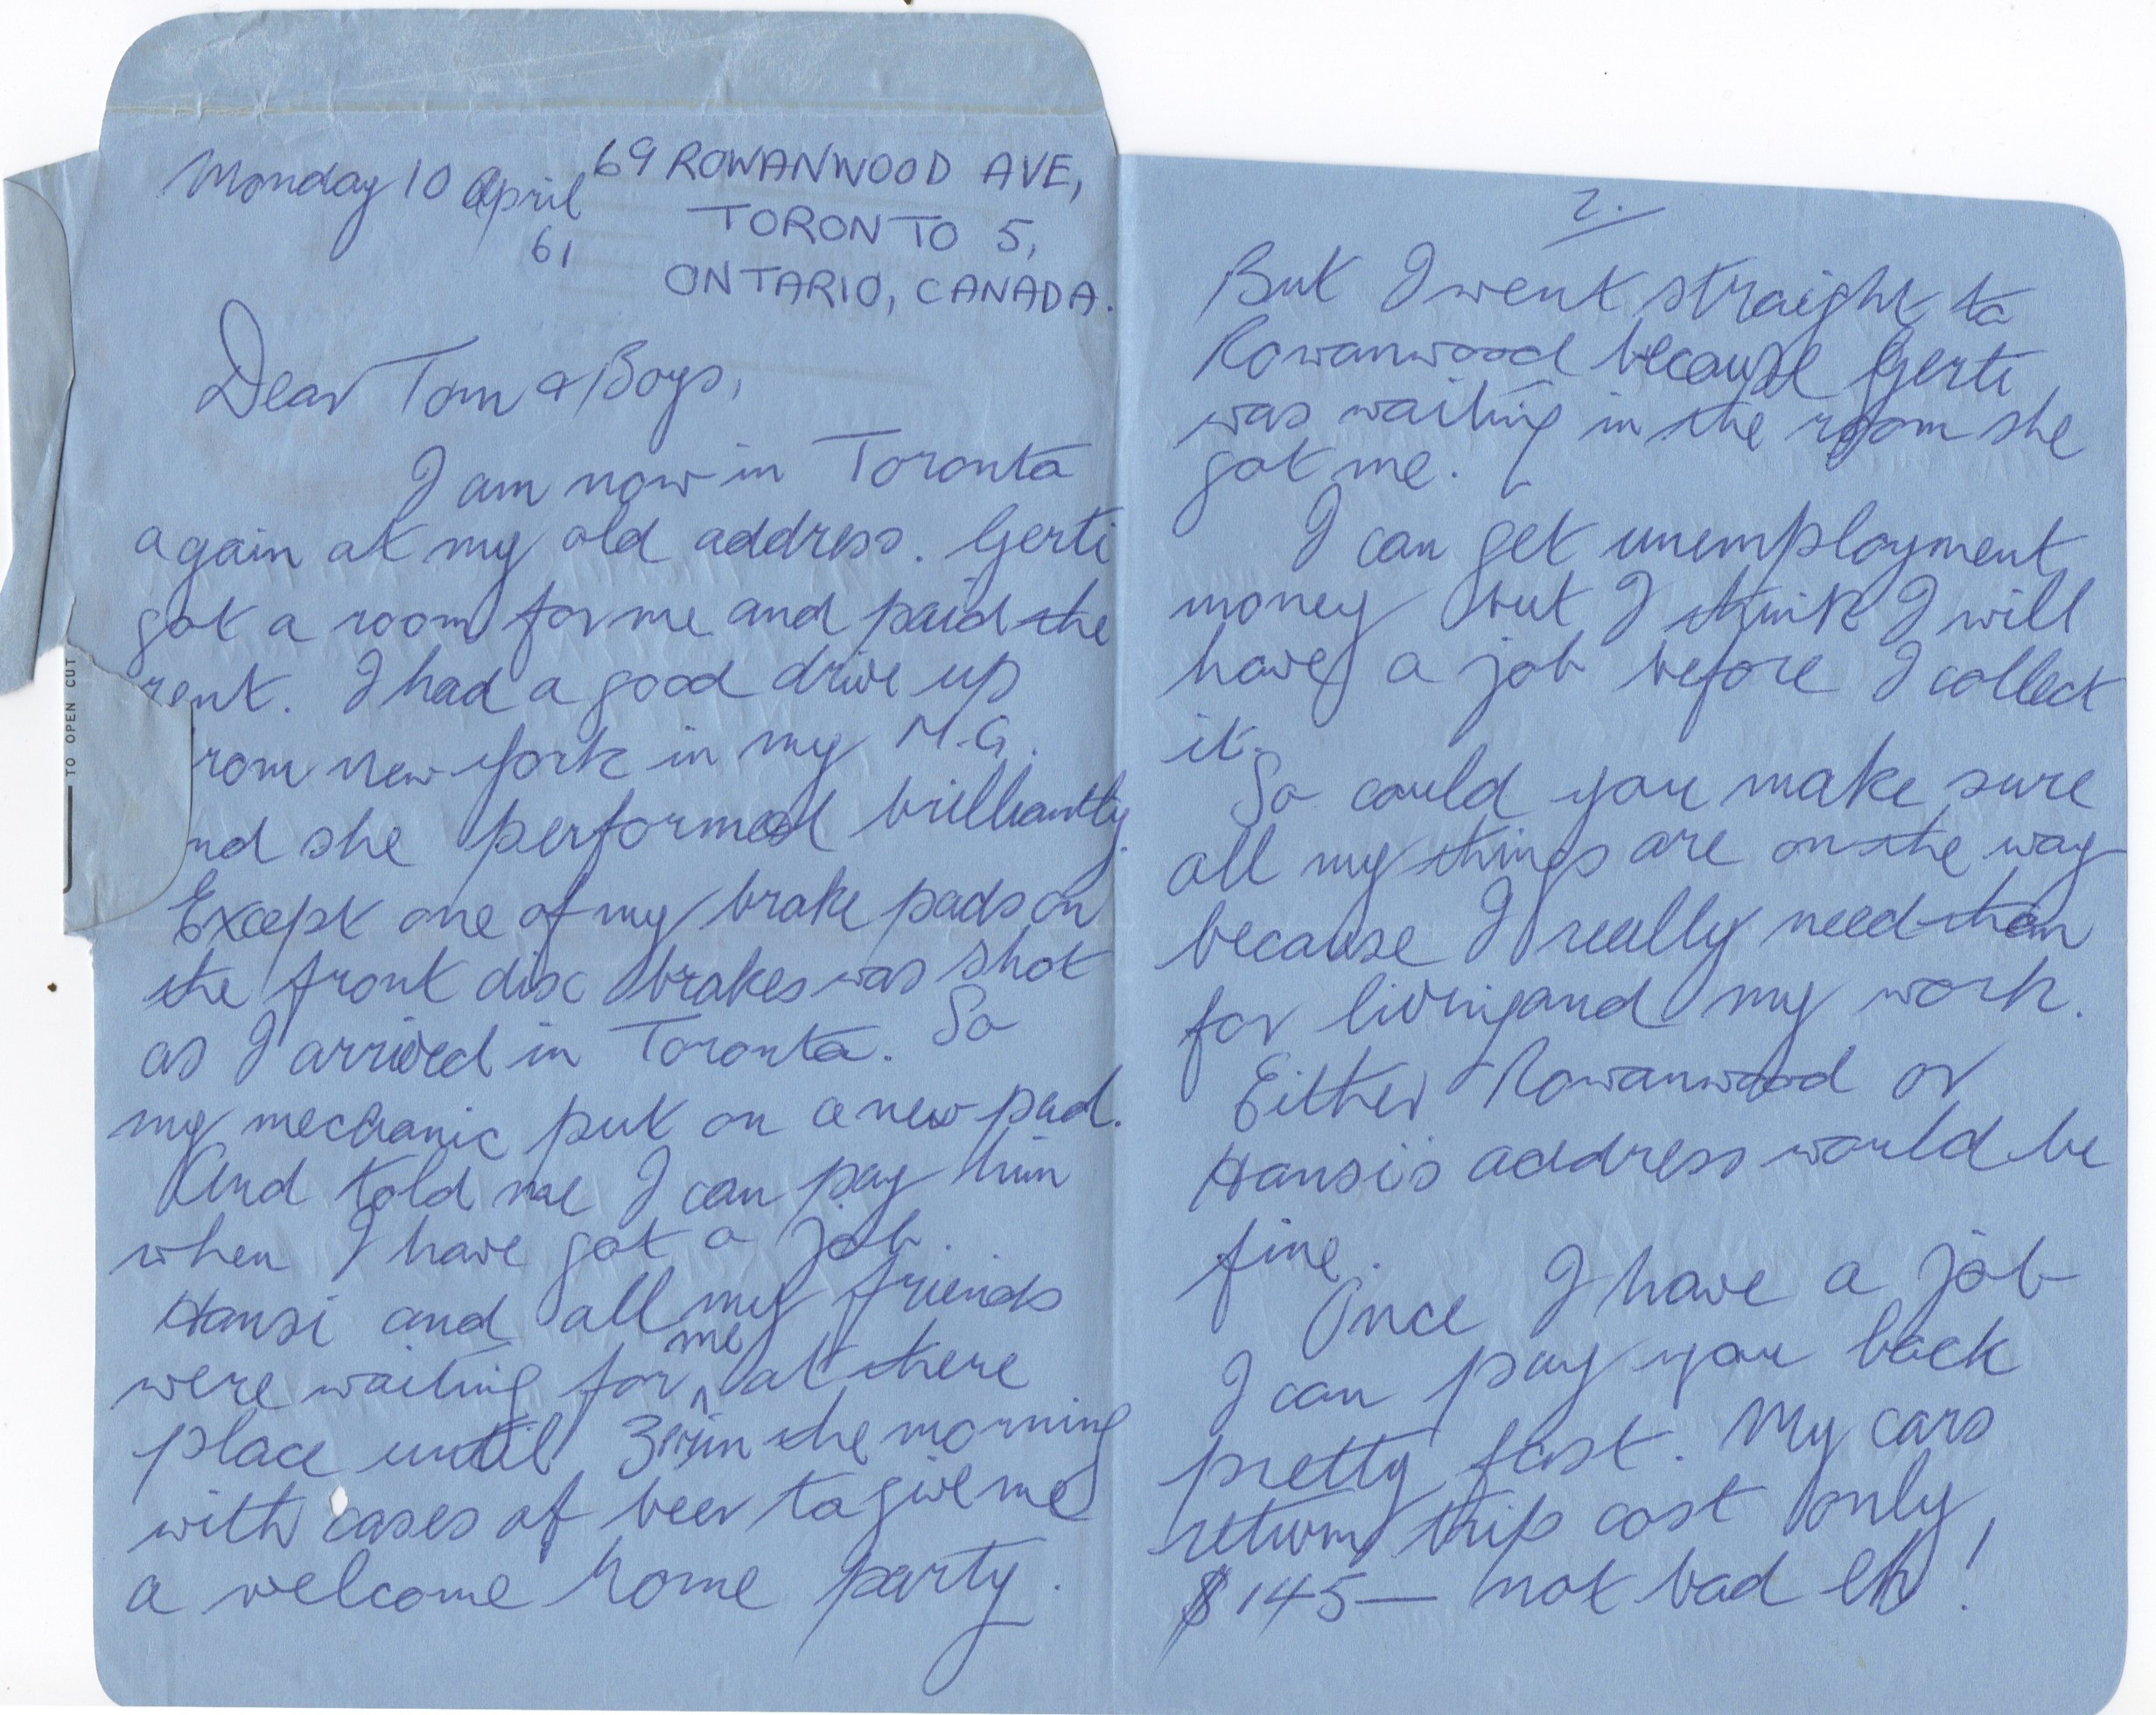 Monday 10 April
61
69 ROWANWOOD AVE,
TORONTO 5,
ONTARIO, CANADA.
Dear Tom & Boys,
I am now in Toronto
again at my old address. Gerti
got a room for me and paid the
rent. I had a good drive up
rom New York in my M.G.
nd she performed brilliantly.
Except one of my brake pads on
the front disc brakes was shot
as I arrived in Toronto. So
my mechanic put on a new pad.
And told me I can pay him
when I have got a job.
Hansi and all my friends
were waiting for me at there
place until 3 in the morning
with cases of beer to give me
a welcome home party.
TO OPEN CUT
2.
But I went straight to
Rowanwood because Gerti
was waiting in the room she
got me.
I can get unemployment
money but I think I will
have a job before I collect
it.
So could you make sure
all my things are on the way
because I really need them
for living and my work.
Either Rowanwood or
Hansi's address would be
fine.
Once I have a job
I can pay you back
pretty fast. My cars
return trip cost only
$145— not bad eh!